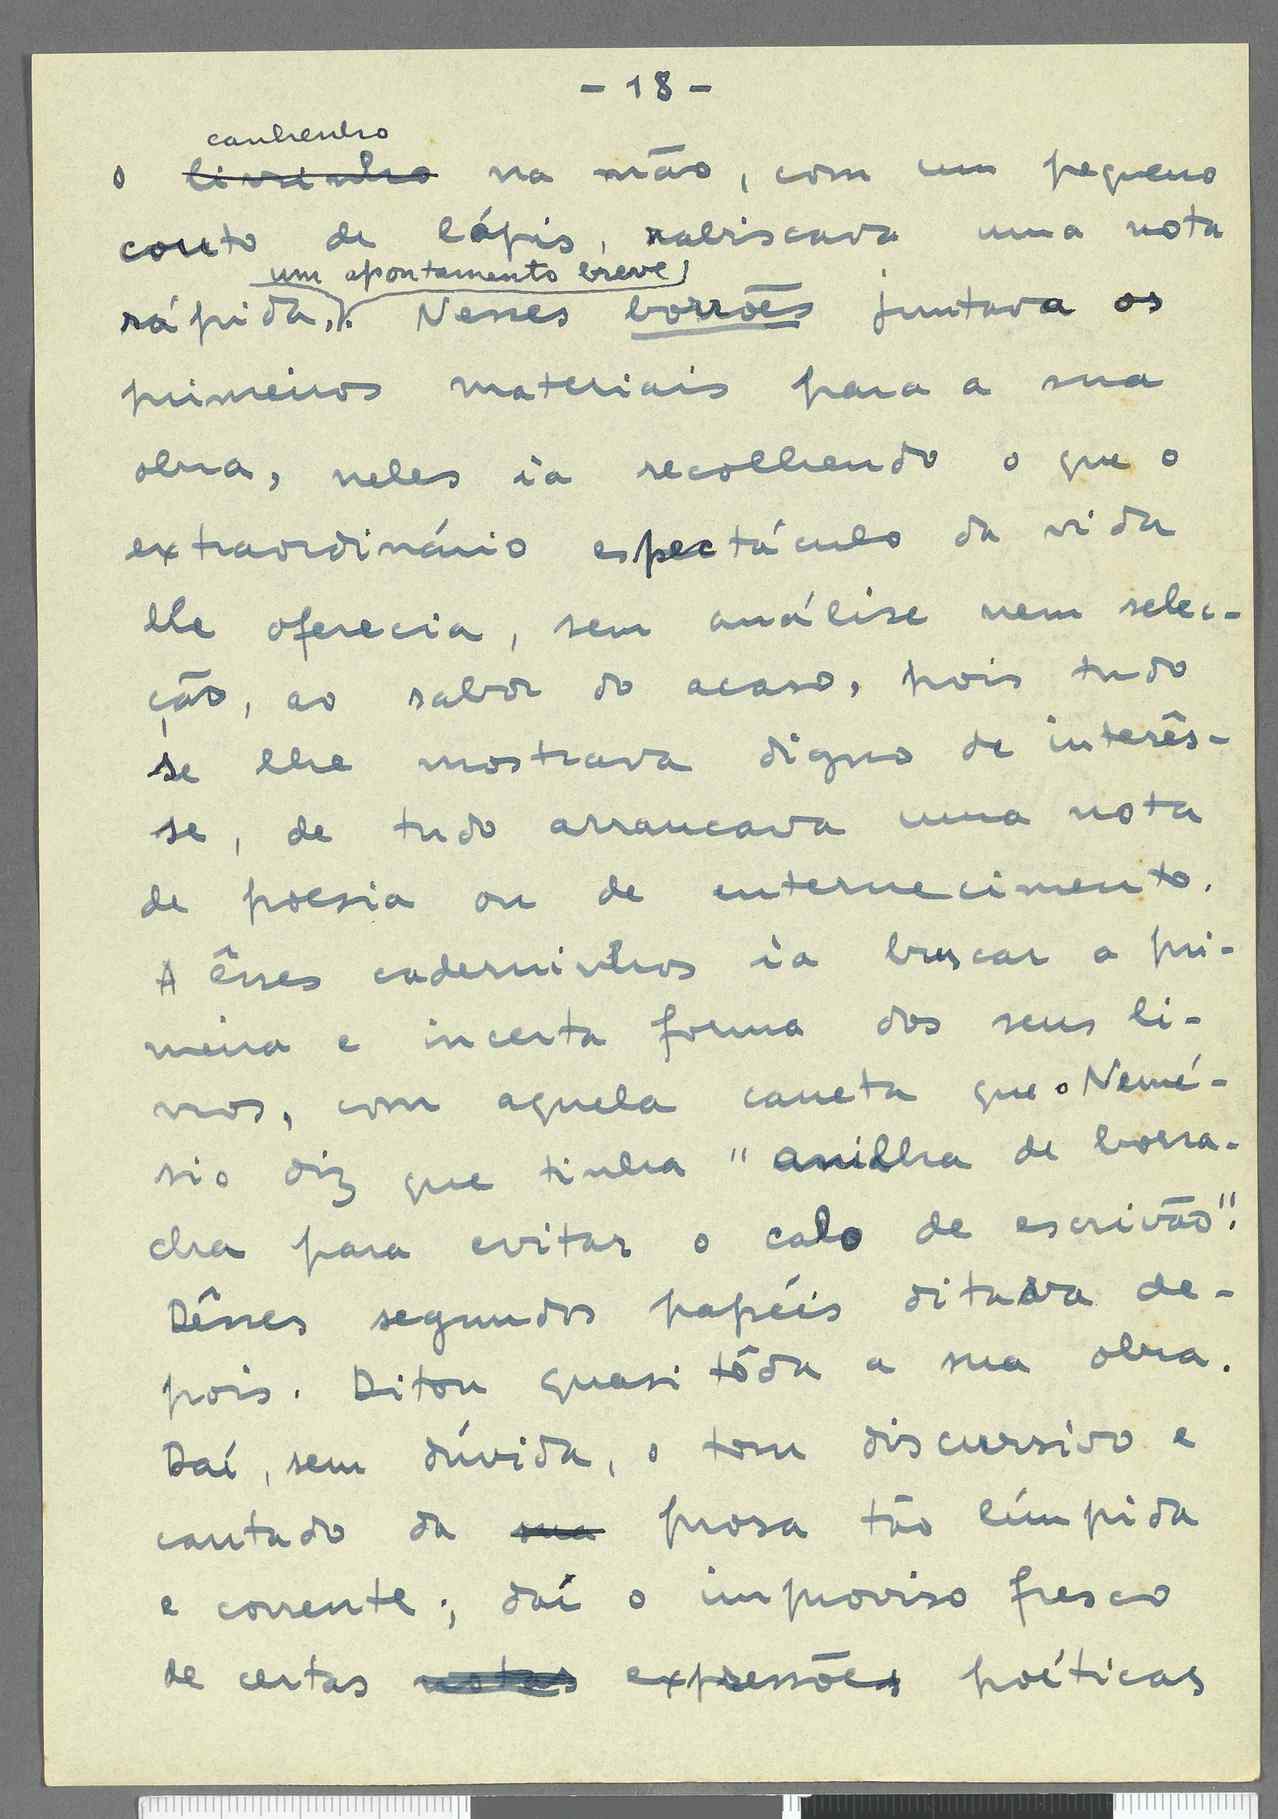 - 18 -
canhenho
o livrinho na mão, com um pequeno
couto de lápis, rabiscava uma nota
um apontamento breve
rápida,. Nesses borrões juntava os
primeiros materiais para a sua
obra, neles ia recolhendo o que o
extraordinário espectáculo da vida
lhe oferecia, sem análise nem selec-
ção, ao sabor do acaso, pois tudo
se lhe mostrava digno de interês-
se, de tudo arrancava uma nota
de poesia ou de enternecimento.
A êsses caderninhos ia buscar a pri-
meira e incerta forma dos seus li-
vros, com aquela caneta que o Nemé-
sio diz que tinha "anilha de borra-
cha para evitar o calo de escrivão".
Dêsses segundos papéis ditava de-
pois. Ditou quasi tôda a sua obra.
Daí, sem dúvida, o tom discursivo e
cantado da sua prosa tão límpida
e corrente; daí o improviso fresco
de certas notas expressões poéticas